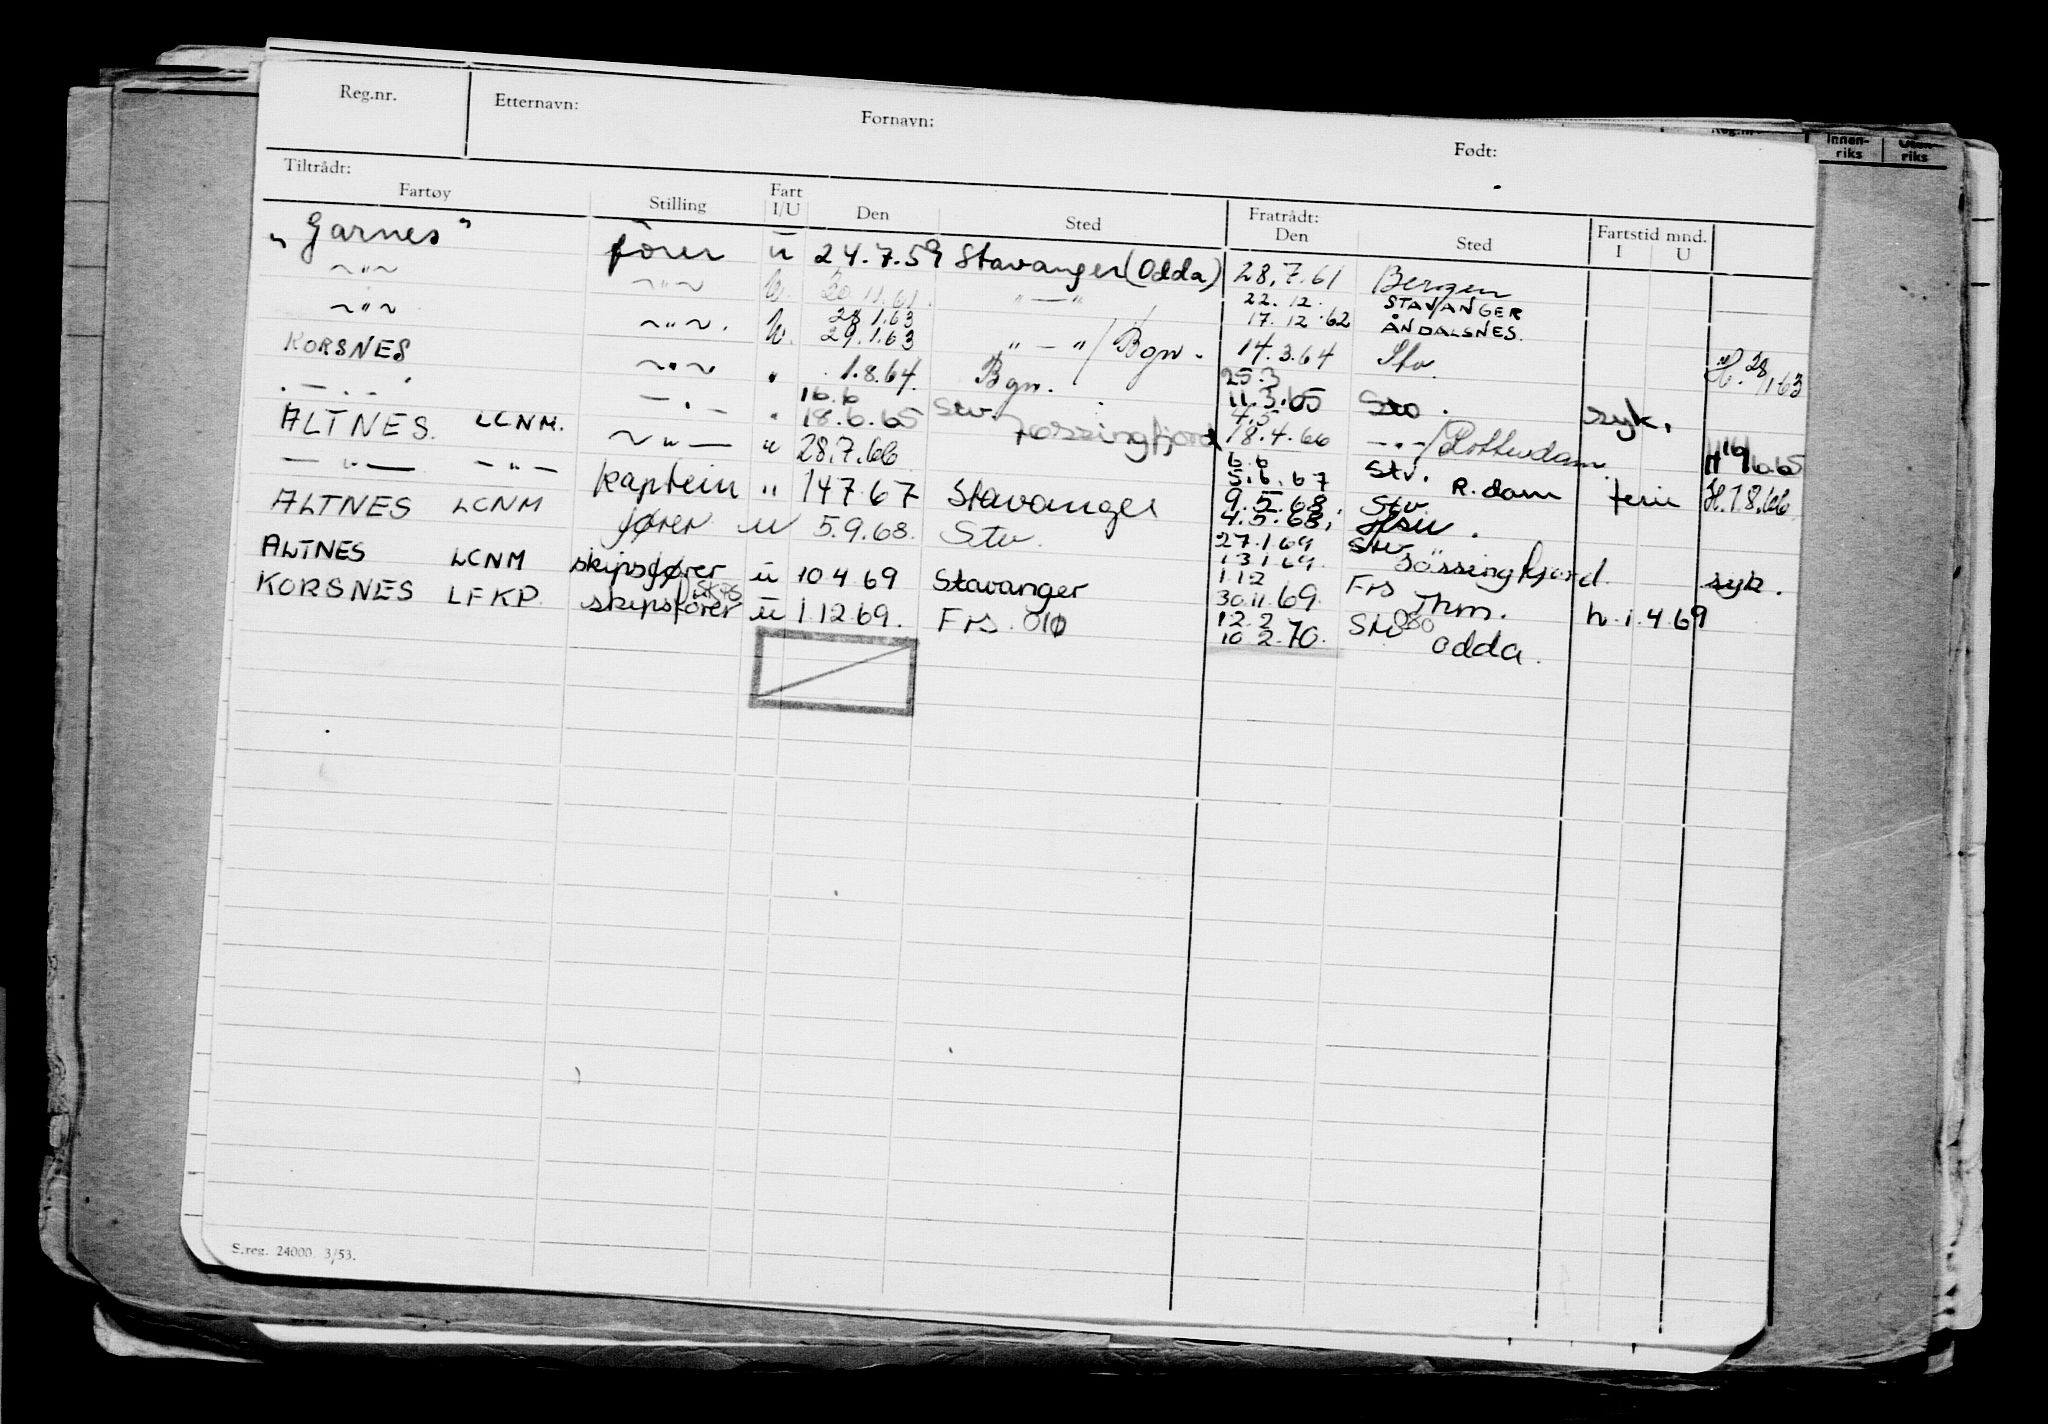 Reg.nr. Etternavn: Fornavn: Født:
Innen-riks riks
Tiltrådt: Fratrådt:
Fartøy Stilling Fart I/U Den Sted Den Sted Fartstid mnd. I U
"Garnes" fører u 24.7.59 Stavanger (Odda) 28.7.61 Bergen
~"~ ~"~ u. 20 11.61. "—" 22.12. STAVANGER
17.12.62 ÅNDALSNES.
~"~ ~"~. u. 28.1.63
29.1.63 "—"/Bgn. 14.3.64 Stv. H. 28/1 63
KORSNES ~"~ " 1.8.64. Bgn. 25.3
11.3.65 Sto. syk.
.—.—. —"— " 16.6
18.6.65 Stv. Jøssingfjord 4.5
18.4.66 —"—/Rotterdam H 16/6.65
ALTNES. LCNM. ~"— " 28.7.66 6.6
5.6.67 Stv. R.dam ferie H.18.66
—"— —"— kaptein " 14.7.67 Stavanger 9.5.68.
4.5.68. Stv.
ALTNES LCNM fører u 5.9.68. Stv. 27.1.69
13.1.69. Stv Jøssingfjord. syk.
ALTNES LCNM skipsfører u 10.4.69 Stavanger 1.12
30.11.69. Frs Thm. h.1.4.69
KORSNES LFKP. skipsfører u 1.12.69. Frs. 010 12.2
10.2.70. Stv 080 Odda.
S.reg. 24000. 3/53.